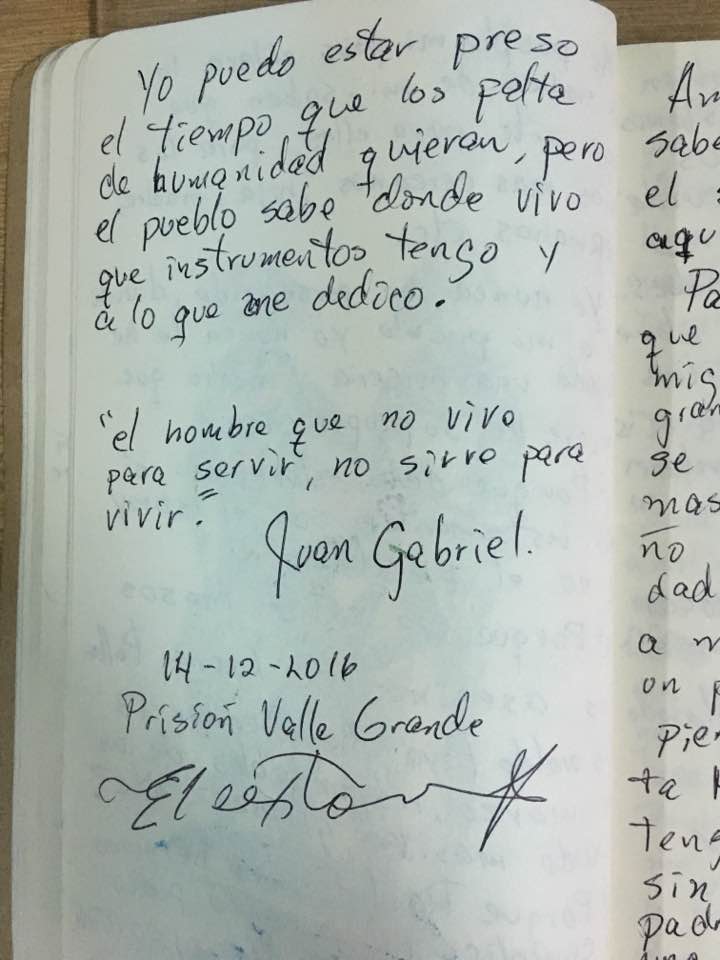 Yo puedo estar preso
el tiempo que los palta
de humanidad quieran, pero
el pueblo sabe donde vivo
que instrumentos tengo y
a lo que me dedico.
"el hombre que no vive
para servir, no sirve para
vivir.
Juan Gabriel.
14-12-2016
Prisión Valle Grande
El sexto
Am
sabe
el
aqu
Pa
que
mis
gran
se
mas
no
dad
a
on
pien
ta
teng
sin
padr